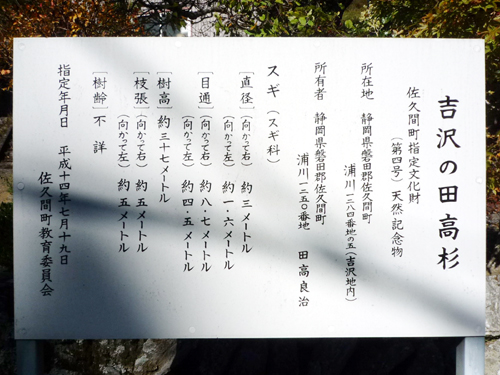 吉沢の田高杉
佐久間町指定文化財
(第四号) 天然記念物
所在地 静岡県磐田郡佐久間町
浦川一二八四番地の五(吉沢地内)
所有者 静岡県磐田郡佐久間町
浦川一二五〇番地 田高良治
スギ (スギ科)
[直径] (向かって右) 約三メートル
(向かって左) 約一・六メートル
[目通] (向かって右) 約八・七メートル
(向かって左) 約四・五メートル
[樹高] 約三十七メートル
[枝張] (向かって右) 約五メートル
(向かって左) 約五メートル
[樹齢] 不詳
指定年月日 平成十四年七月十九日
佐久間町教育委員会